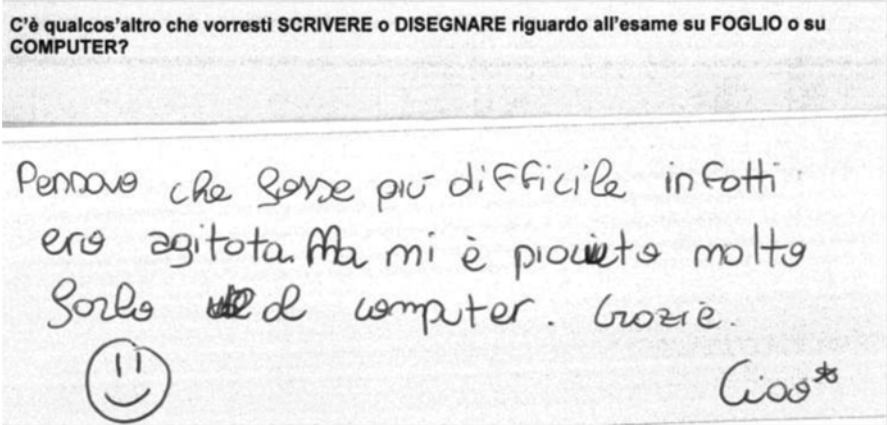 C'è qualcos'altro che vorresti SCRIVERE o DISEGNARE riguardo all'esame su FOGLIO o su
COMPUTER?
Pensavo che fosse più difficile infatti
ero agitata. Ma mi è piaciuto molto
farlo al computer. Grazie.
Ciao*